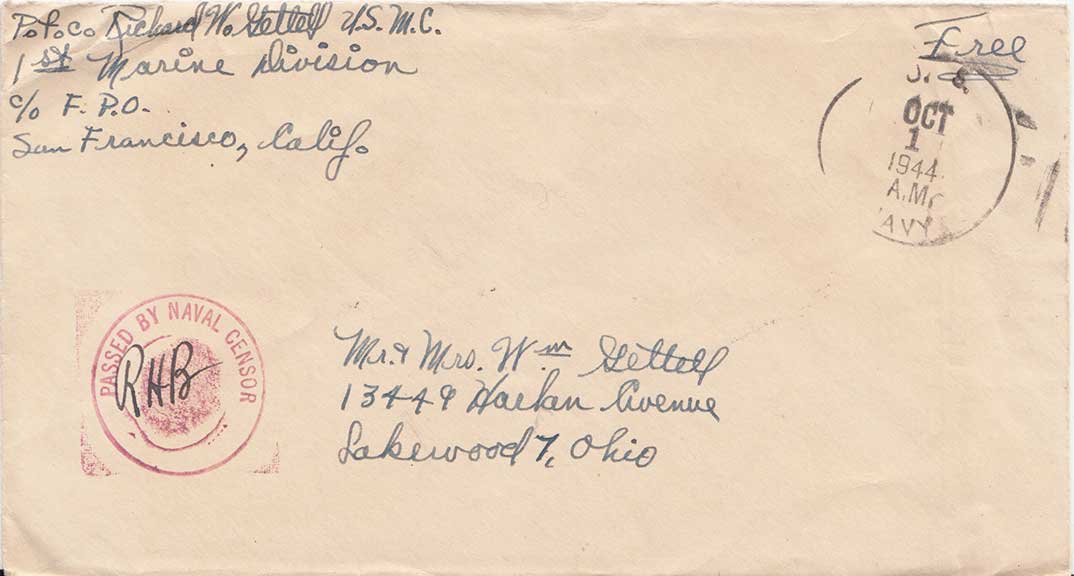 P.F.C. Richard W. Gettell U.S.M.C.
1st Marine Division
c/o F.P.O.
San Francisco, Calif.
Free
U. S.
OCT
1
1944
A.M.
NAVY
PASSED BY NAVAL CENSOR
RHB
Mr. & Mrs. Wm Gettell
13449 Harlan Avenue
Lakewood 7, Ohio